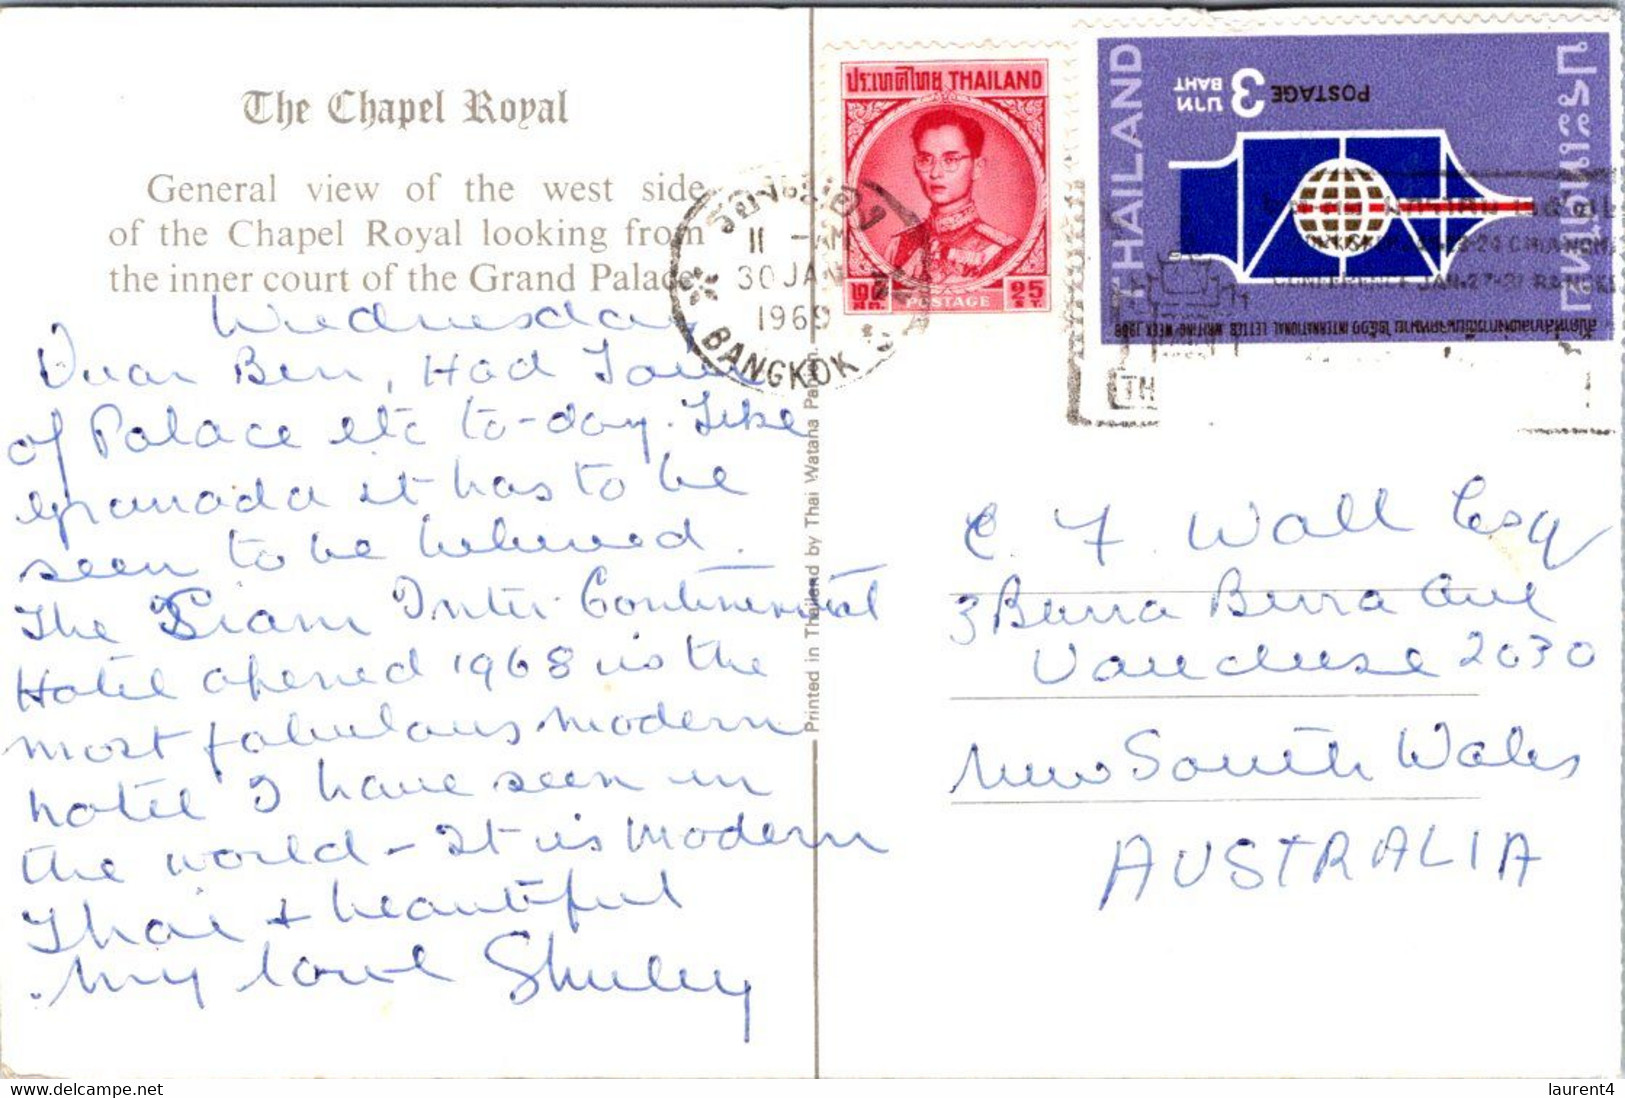 The Chapel Royal
General view of the west side
of the Chapel Royal looking from
the inner court of the Grand Palace
Wednesday
Dear Ben, Had Tour
of Palace etc to-day. Like
Granada it has to be
seen to be believed.
The Siam Inter-Continental
Hotel opened 1968 is the
most fabulous modern
hotel I have seen in
the world - It is modern
Thai + beautiful
My love Shirley
Printed in Thailand by Thai Watana Panich.
ประเทศไทย THAILAND
๒๕ สต. POSTAGE 25 ST.
11 - AM
30 JAN
1969
BANGKOK
THAILAND
ประเทศไทย
3 บาท BAHT
POSTAGE
สัปดาห์สากลแห่งการเขียนจดหมาย ๒๕๑๑ INTERNATIONAL LETTER WRITING WEEK 1968
CONFERENCE JAN. 27-31
TH
C. F. Wall Esq
3 Burra Burra Ave
Vaucluse 2030
New South Wales
AUSTRALIA
laurent4